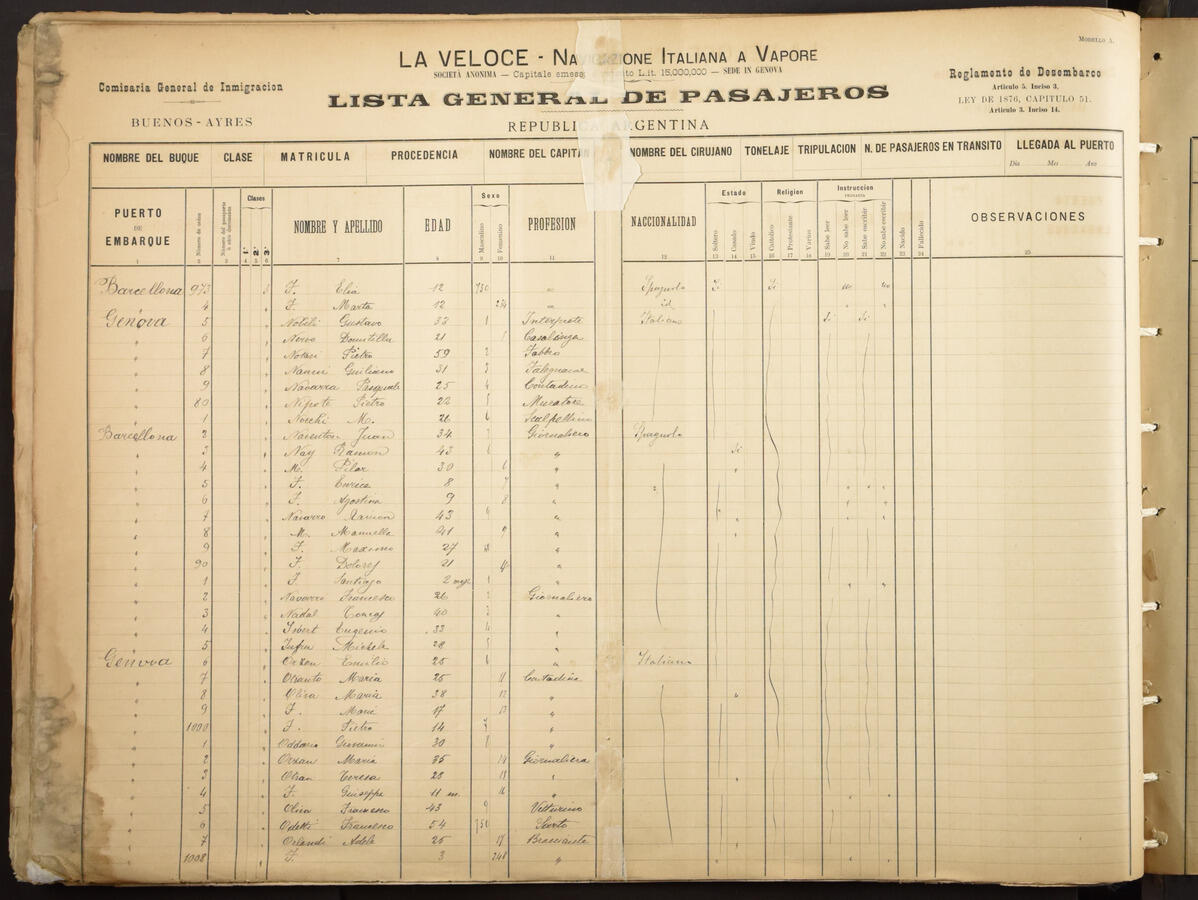 MODELLO A.
LA VELOCE - NAVIGAZIONE ITALIANA A VAPORE
SOCIETÀ ANONIMA — Capitale emess to Lit. 15,000,000 — SEDE IN GENOVA
Comisaria General de Inmigracion
BUENOS-AYRES
LISTA GENERAL DE PASAJEROS
REPUBLICA ARGENTINA
Reglamento de Desembarco
Articulo 5. Inciso 3.
LEY DE 1876, CAPITULO 51.
Articulo 3. Inciso 14.
NOMBRE DEL BUQUE CLASE MATRICULA PROCEDENCIA NOMBRE DEL CAPITAN NOMBRE DEL CIRUJANO TONELAJE TRIPULACION N. DE PASAJEROS EN TRANSITO LLEGADA AL PUERTO
Dia Mes Ano
PUERTO DE EMBARQUE Número de orden Clases 1. 2. 3. NOMBRE Y APELLIDO EDAD Sexo Masculino Femenino PROFESION NACCIONALIDAD Estado Soltero Casado Viudo Religion Cattolico Protestante Varios Instruccion PRIMARIA Sabe leer No sabe leer Sabe escribir No sabe escribir Nacido Fallecido OBSERVACIONES
1 2 3 4 5 6 7 8 9 10 11 12 13 14 15 16 17 18 19 20 21 22 23 24 25
Barcellona 973 3 F. Elia 12 730 " Spagnola Si Si no no
" 4 " F. Marta 12 234 " id.
Genova 5 " Gustavo 33 1 Interprete Italiano Si Si
" 6 " Nervo Domitilla 21 1 Casalinga
" 7 " Notari Pietro 59 2 Fabbro
" 8 " Nanni Giuliano 31 3 Falegname
" 9 " Navarra Pasquale 25 4 Contadino
" 80 " Nipote Pietro 22 5 Muratore
" 1 " Nocchi M. 26 6 Scalpellino
Barcellona 2 " Juan 34 7 Giornaliero Spagnola
" 3 " Nay Ramon 43 " Si
" 4 " M. Pilar 30 6 "
" 5 " F. Enrica 8 7 "
" 6 " F. Agostina 9 8 "
" 7 " Navarro Ramon 43 9 "
" 8 " M. Manuella 41 9 "
" 9 " F. Maximo 27 "
" 90 " F. Dolores 21 "
" 1 " F. Santiago 2 1 "
" 2 " Navarro Francesco 26 2 Giornaliero
" 3 " Nadal 40 3 "
" 4 " Eugenio 33 4 "
" 5 " Michele 28 5 "
Genova 6 " Emilio 25 6 " Italiana
" 7 " Maria 25 11 Contadina
" 8 " Oliva Maria 38 12 "
" 9 " F. 17 13 "
" 1000 " F. Pietro 14 7 "
" 1 " Giovanni 30 8 "
" 2 " Maria 35 Giornaliera
" 3 " Teresa 28 "
" 4 " F. Giuseppe 11 m. "
" 5 " Oliva Francesco 43 9 Vetturino
" 6 " Odetti Francesco 54 750 Sarto
" 7 " Orlandi Adele 25 17 Bracciante
1008 " F. 3 248 "